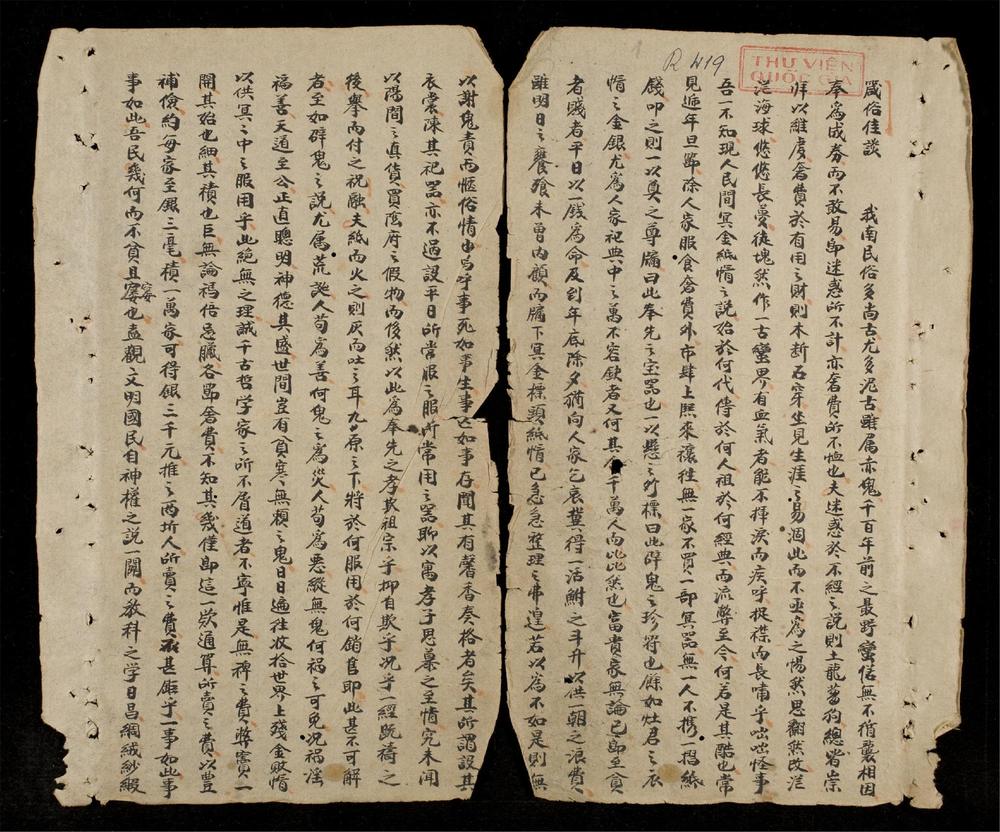 R 419
THƯ VIỆN
QUỐC GIA
箴俗佳談 我南民俗多尚古尤多泥古雖屬亦鬼千百年前之最野蠻俗無不循襲相因
奉為成券而不敢易即迷惑所不計亦奢費所不恤也夫迷惑於不經之說則土龍蒭狗總皆崇
拜以維虔奢費於有用之財則木斲石穿坐見生涯之易涸此而不亟為之惕然思翻然改茫
茫海球悠悠長夢徒塊然作一古蠻界有血氣者能不揮淚而疾呼捉襟而長嘯乎咄咄怪事
吾一不知現人民間冥金紙惰之說始於何代傳於何人祖於何經典而流弊至今何若是其酷也常
見遞年旦節除人家服食奢費外市肆上熙來攘往無一家不買一部冥器無一人不携一摺紙
錢叩之則一以奠之尊牖曰此奉先之宝器也一以懸之竹標曰此辟鬼之珍符也餘如灶君之衣
惰之金銀尤為人家祀典中之萬不容缺者又何其 千萬人而比比然也富貴家無論已即至貧
者賤者平日以一錢為命及到年底除夕猶向人家乞哀冀得一活鮒之斗升以供一朝之浪費
雖明日之饔飧未曾內顧而牖下冥金標頭紙惰已急急整理之弗遑若以為不如是則無
以謝鬼責而愜俗情也嗚呼事死如事生事亡如事存聞其有馨香奏格者矣其所謂設其
衣裳陳其祀器亦不過設平日所常服之服所常用之器聊以寓孝子思慕之至情究未聞
以陽間之真貨買陰府之假物而後然以此為奉先之孝欺祖宗乎抑自欺乎況乎一經既禱之
後舉而付之祝融夫紙而火之則灰而吐之耳九原之下將於何服用於何銷售即此甚不可解
者至如辟鬼之說尤屬荒誕人苟為善何鬼之為災人苟為惡縱無鬼何禍之可免況禍淫
福善天道至公正直聰明神德其盛世間豈有貧寒無賴之鬼日日遍往收拾世界上殘金敗惰
以供冥冥中之服用乎此絕無之理誠千古哲学家之所不屑道者不寧惟是無裨之費弊竇一
開其始也細其積也巨無論禡俉忌臘各節奢費不知其幾僅即這一欵通算所賣之費以豊
補儉約每家至銀三毫積一萬家可得銀三千元推之西圻人所賣之費不甚鉅乎一事如此事
事如此吾民幾何而不貧且窶也盍觀文明國民自神權之說一開而教科之学日昌綢絨紗緞